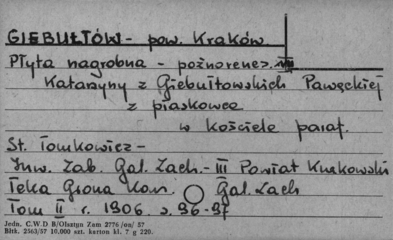 GIEBUŁTÓW - pow. Kraków
Płyta nagrobna - późnorenes.
Katarzyny z Giebułtowskich Pawęckiej
z piaskowca
w kościele paraf.
St. Tomkowicz -
Inw. Zab. Gal. Zach. - III Powiat Krakowski
Teka Grona Kon. Gal. Zach
Tom II r. 1906 s. 96-97
Jedn. C.W D B/Olsztyn Zam 2776/on/ 57
Błtk. 2563/57 10.000 szt. karton kl. 7 g 220.